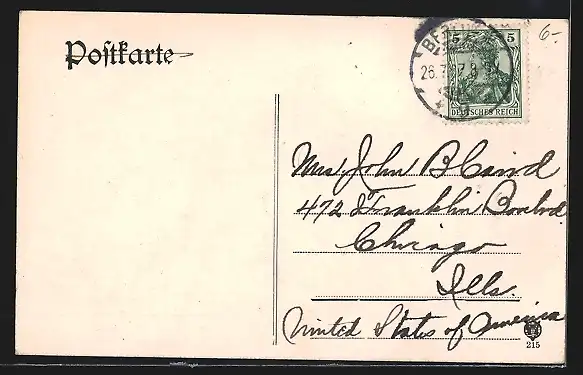 Postkarte
6-
BERLIN
26.7. 7.8
5 5
DEUTSCHES REICH
Mrs John B Caird
472 Franklin Boulvd
Chicago
Ills.
United States of America
215